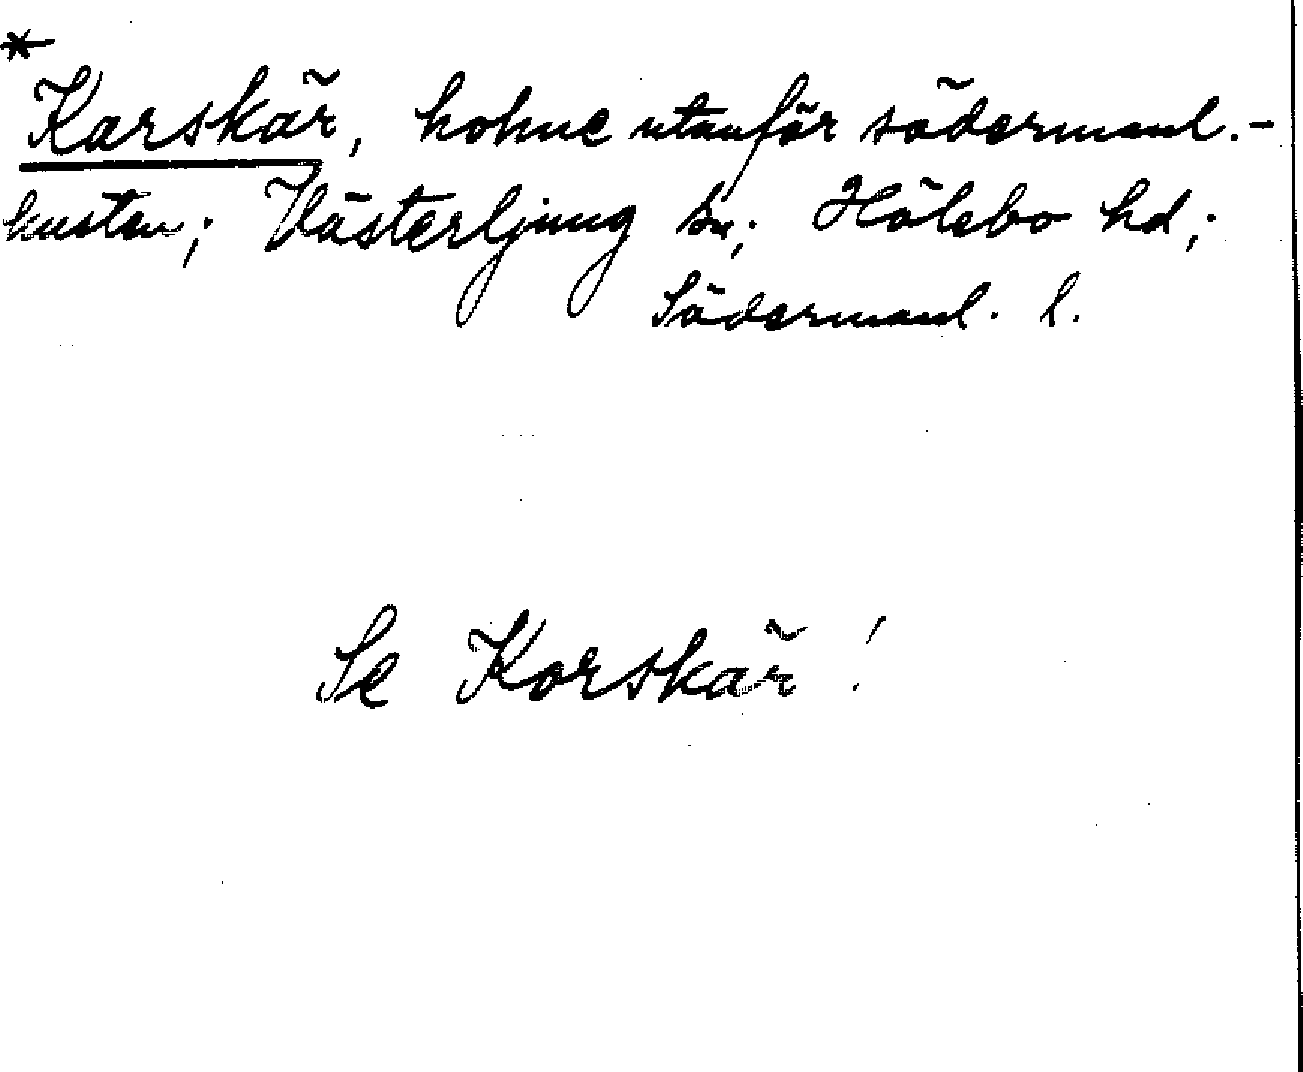 *
Karskär, holme utanför södermanl.-
kusten; Västerljung sn; Hölebo hd;
Södermanl. l.
Se Korskär!